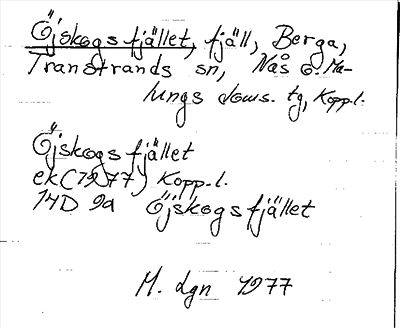 Öjskogsfjället, fjäll, Berga,
Transtrands sn, Nås o. Ma-
lungs doms. tg, Koppl.
Öjskogsfjället
ek (1977) Kopp.l.
14D 9a Öjskogsfjället
M. Lgn 1977